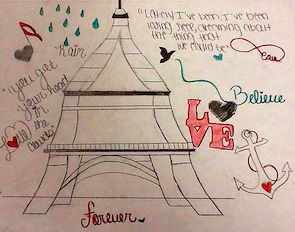 "Lately I've been, I've been
losing sleep, dreaming about
the thing that
we could be"
Rain
"you get
your head
in
the
clouds"
Believe
LOVE
forever